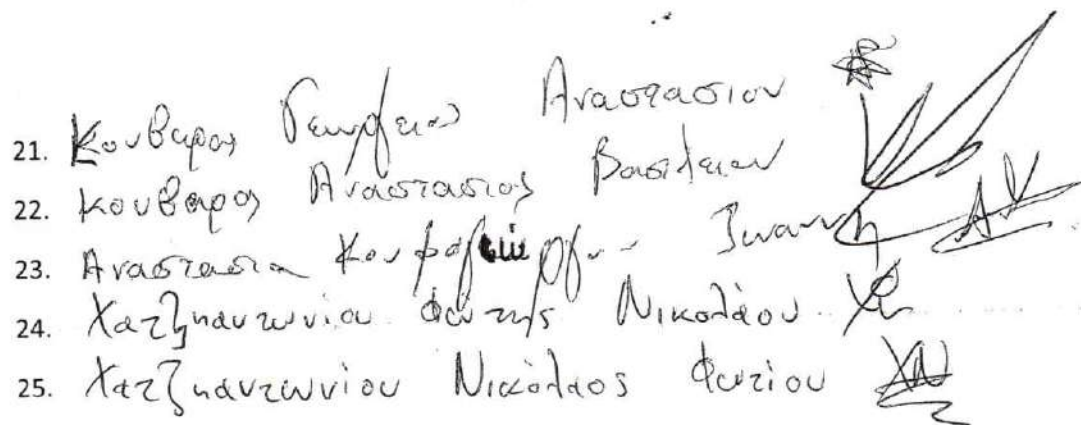 21. Κουβαρος Γεωργιος Αναστασιου
22. Κουβαρος Αναστασιος Βασιλειου
23. Αναστασια Ιωαννη
24. Χατζηαντωνίου Φωτης Νικολάου
25. Χατζηαντωνίου Νικόλαος Φωτίου